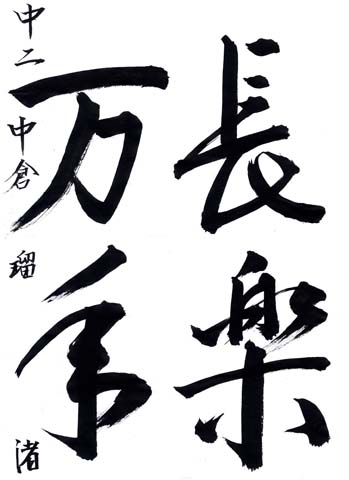 長楽
万年
中二 中倉 瑠渚